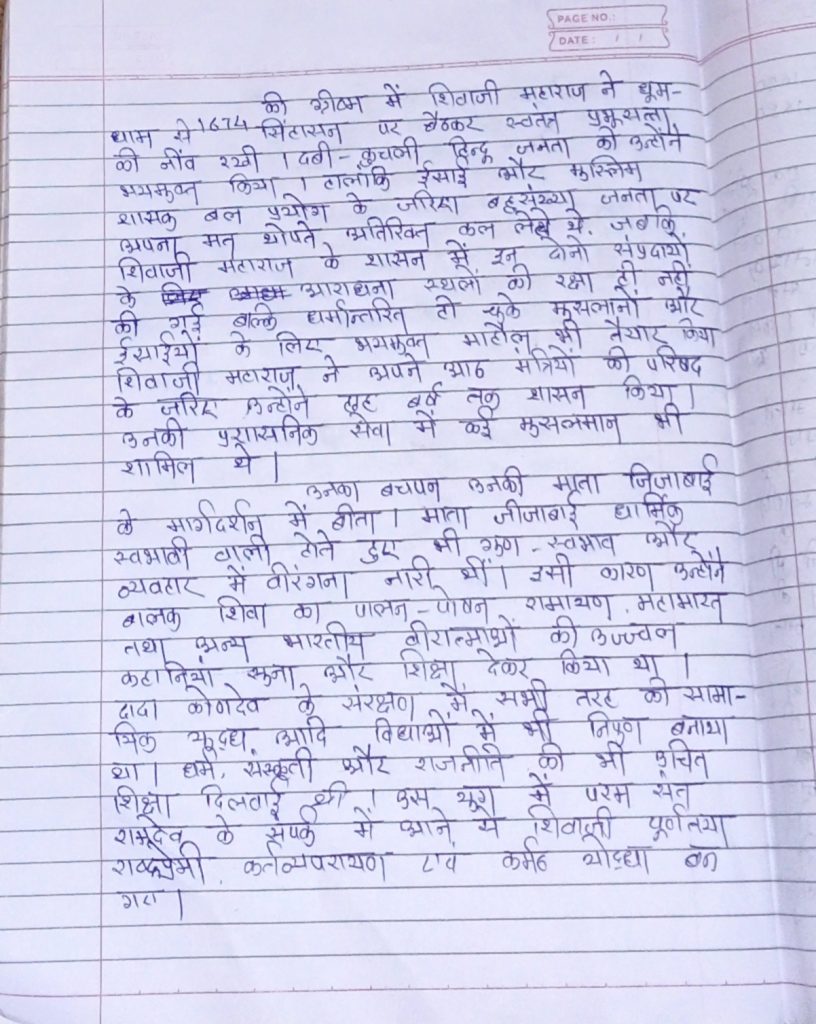 PAGE NO.:
DATE: / /
की ग्रीष्म में शिवाजी महाराज ने धूम-
धाम से 1674 सिंहासन पर बैठकर स्वतंत्र प्रभुसत्ता
की नींव रखी । दबी-कुचली हिन्दू जनता को उन्होंने
भयमुक्त किया । हालांकि ईसाई और मुस्लिम
शासक बल प्रयोग के जरिए बहुसंख्या जनता पर
अपना मत थोपते अतिरिक्त कल लेते थे, जबकि
शिवाजी महाराज के शासन में इन दोनो संप्रदायों
के आराधना स्थलों की रक्षा ही नहीं
की गई बल्कि धर्मान्तरित हो चुके मुसलानों और
ईसाईयों के लिए भयमुक्त माहौल भी तैयार किया
शिवाजी महाराज ने अपने आठ मंत्रियों की परिषद
के जरिए उन्होंने छह वर्ष तक शासन किया ।
उनकी प्रशासनिक सेवा में कई मुसलमान भी
शामिल थे ।
उनका बचपन उनकी माता जिजाबाई
के मार्गदर्शन में बीता । माता जीजाबाई धार्मिक
स्वभावी वाली होते हुए भी गुण-स्वभाव और
व्यवहार में वीरंगना नारी थीं । इसी कारण उन्होंने
बालक शिवा का पालन-पोषन रामायण, महाभारत
तथा अन्य भारतीय वीरात्माओं की उज्ज्वल
कहानियां सुना और शिक्षा देकर किया था ।
दादा कोणदेव के संरक्षण में सभी तरह की सामा-
यिक युद्ध आदि विधाओं में भी निपुण बनाया
था । धर्म, संस्कृती और राजनीति की भी उचित
शिक्षा दिलवाई थी । उस युग में परम संत
रामदेव के संपर्क में आने से शिवाजी पूर्णतया
राष्ट्रप्रेमी, कर्तव्यपरायण एवं कर्मठ योद्धा बन
गए ।